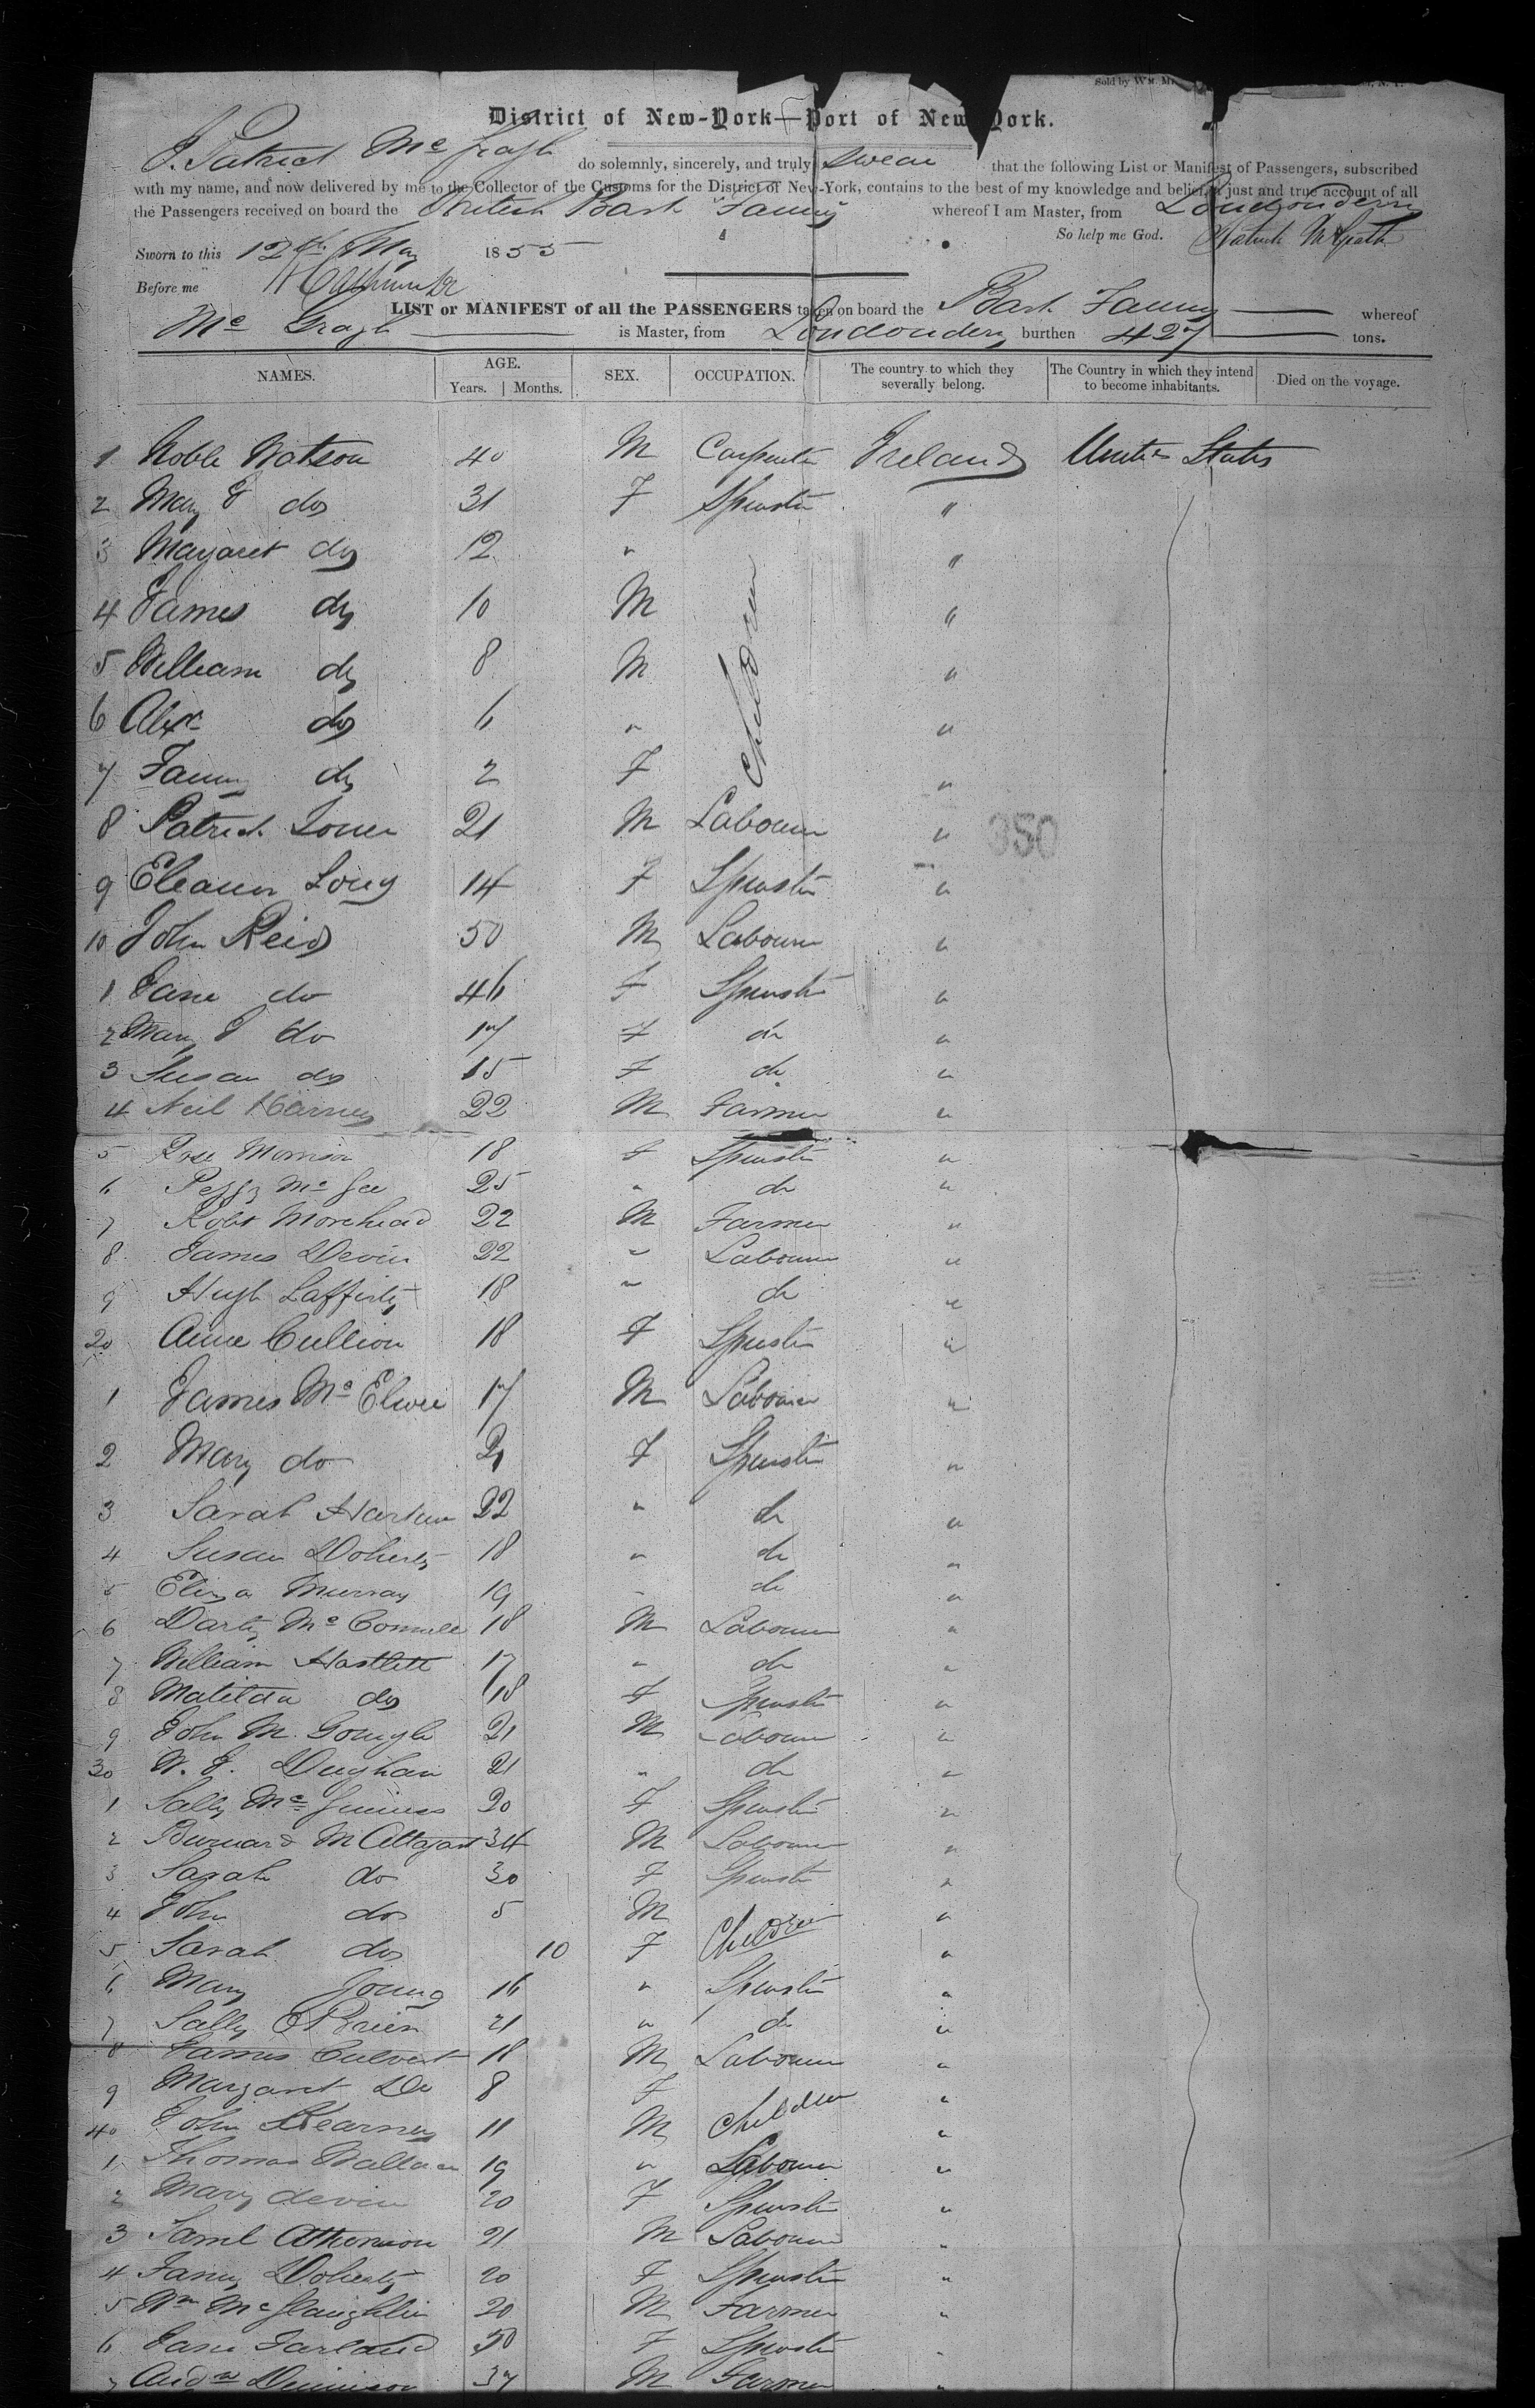 Sold by Wm.
District of New-York—Port of New York.
I, Patrick Mc Grath do solemnly, sincerely, and truly swear that the following List or Manifest of Passengers, subscribed
with my name, and now delivered by me to the Collector of the Customs for the District of New-York, contains to the best of my knowledge and belief, a just and true account of all
the Passengers received on board the British Bark Fanny whereof I am Master, from Londonderry
So help me God. Patrick McGrath
Sworn to this 12th May 1855
Before me
LIST or MANIFEST of all the PASSENGERS taken on board the Bark Fanny whereof
Mc Grath is Master, from Londonderry burthen 427 tons.
NAMES. AGE. Years. Months. SEX. OCCUPATION. The country to which they severally belong. The Country in which they intend to become inhabitants. Died on the voyage.
1 Noble Watson 40 M Carpenter Ireland United States
2 Mary J do 31 F Spinster "
3 Margaret do 12 " "
4 James do 10 M Children "
5 William do 8 M "
6 Alexr do 6 " "
7 Fanny do 2 F "
8 Patrick 21 M Labourer " 350
9 Eleanor Long 14 F Spinster "
10 John Reid 50 M Labourer "
1 Jane do 46 F Spinster "
2 Mary J do 17 F do "
3 Susan do 15 F do "
4 Neil Kearney 22 M Farmer "
5 Rose Morrison 18 F Spinster "
6 Peggy Mc Gee 25 " do "
7 Robt Morehead 22 M Farmer "
8 James Devin 22 " Labourer "
9 Hugh Lafferty 18 " do "
20 Anne Cullion 18 F Spinster "
1 James Mc Elwee 17 M Labourer "
2 Mary do 21 F Spinster "
3 Sarah Harkin 22 " do "
4 Susan Doherty 18 " do "
5 Eliza Murray 19 " do "
6 Darby Mc Connell 18 M Labourer "
7 William Haslett 17 " do "
8 Matilda do 18 F Spinster "
9 John M Gonigle 21 M Labourer "
30 W. J. Deighan 21 " do "
1 Sally Mc Guiness 20 F Spinster "
2 Burnard M Attagart 34 M Labourer "
3 Sarah do 30 F Spinster "
4 John do 5 M Children "
5 Sarah do 10 F "
6 Mary Young 16 " Spinster "
7 Sally O'Brien 21 " do "
8 James Culvert 18 M Labourer "
9 Margaret Do 8 F Children "
40 John Kearney 11 M "
1 Thomas Wallace 19 " Labourer "
2 Mary devin 20 F Spinster "
3 Saml 21 M Labourer "
4 Fanny Doherty 20 F Spinster "
5 Wm McLaughlin 20 M Farmer "
6 Jane Farland 50 F Spinster "
7 Andw Dennison 37 M Farmer "